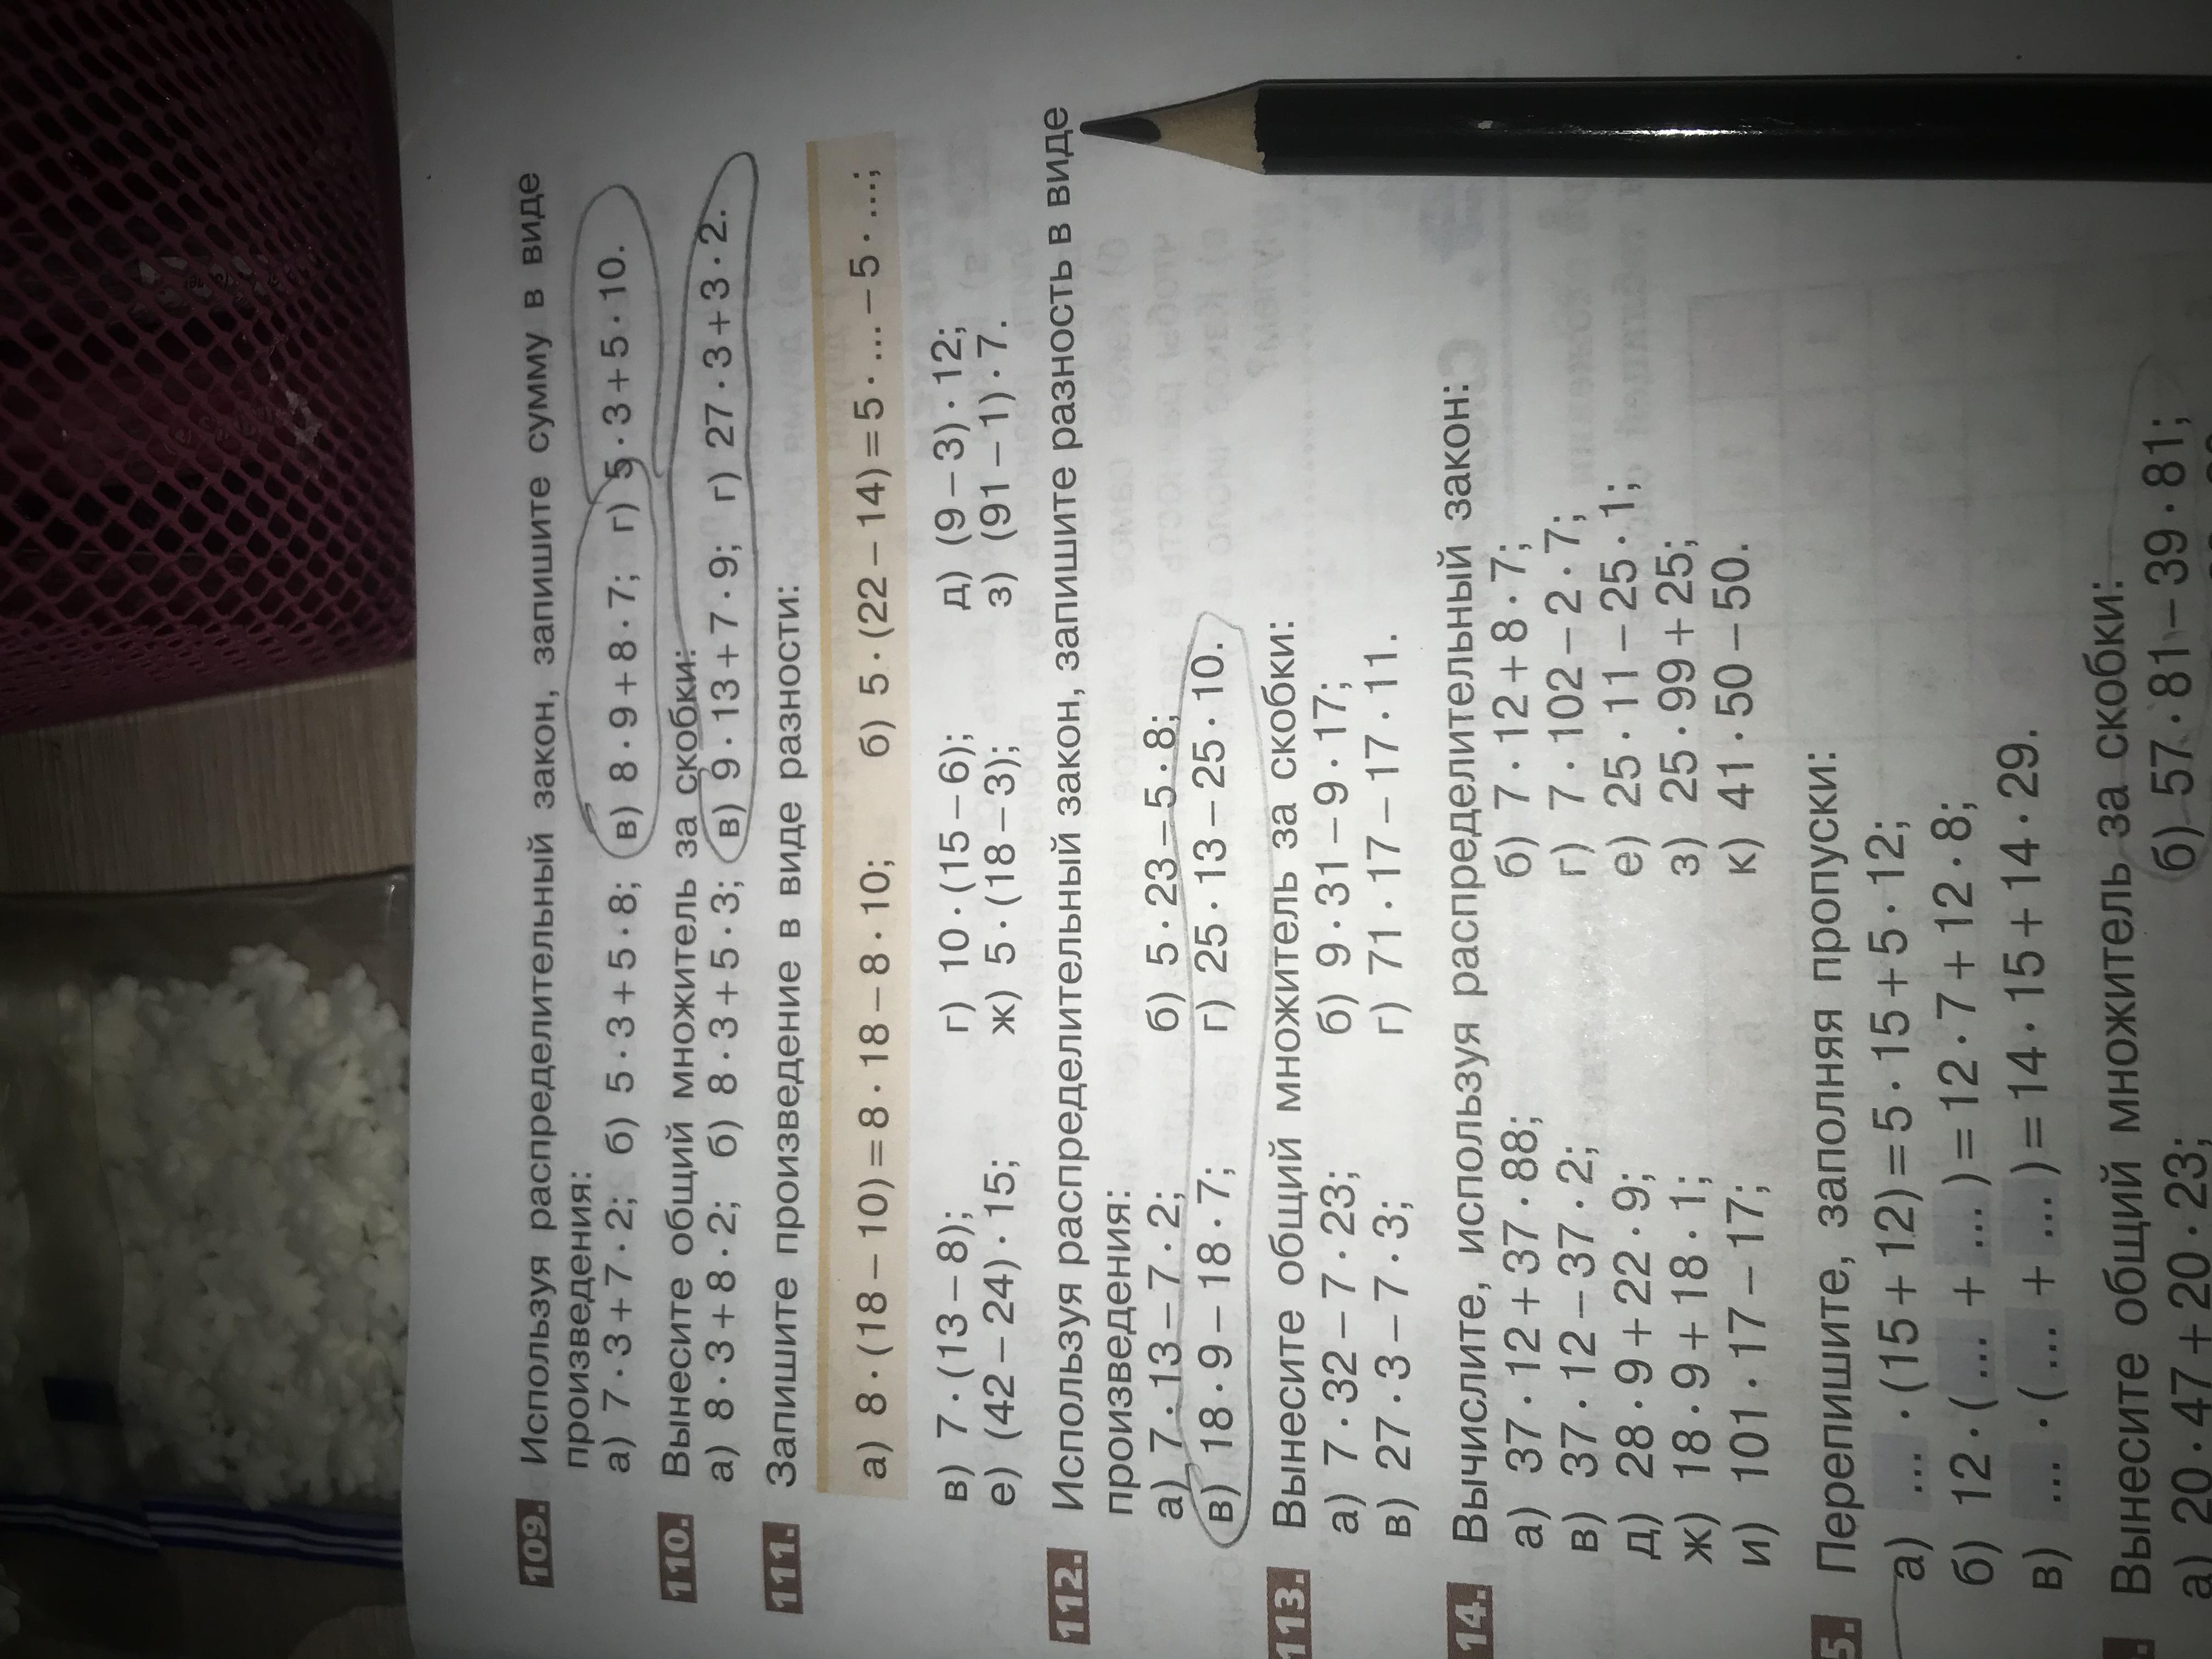 109. Используя распределительный закон, запишите сумму в виде
произведения:
а) 7 · 3 + 7 · 2; б) 5 · 3 + 5 · 8; в) 8 · 9 + 8 · 7; г) 5 · 3 + 5 · 10.
110. Вынесите общий множитель за скобки:
а) 8 · 3 + 8 · 2; б) 8 · 3 + 5 · 3; в) 9 · 13 + 7 · 9; г) 27 · 3 + 3 · 2.
111. Запишите произведение в виде разности:
а) 8 · (18 − 10) = 8 · 18 − 8 · 10; б) 5 · (22 − 14) = 5 · ... − 5 · ...;
в) 7 · (13 − 8); г) 10 · (15 − 6); д) (9 − 3) · 12;
е) (42 − 24) · 15; ж) 5 · (18 − 3); з) (91 − 1) · 7.
112. Используя распределительный закон, запишите разность в виде
произведения:
а) 7 · 13 − 7 · 2; б) 5 · 23 − 5 · 8;
в) 18 · 9 − 18 · 7; г) 25 · 13 − 25 · 10.
113. Вынесите общий множитель за скобки:
а) 7 · 32 − 7 · 23; б) 9 · 31 − 9 · 17;
в) 27 · 3 − 7 · 3; г) 71 · 17 − 17 · 11.
14. Вычислите, используя распределительный закон:
а) 37 · 12 + 37 · 88; б) 7 · 12 + 8 · 7;
в) 37 · 12 − 37 · 2; г) 7 · 102 − 2 · 7;
д) 28 · 9 + 22 · 9; е) 25 · 11 − 25 · 1;
ж) 18 · 9 + 18 · 1; з) 25 · 99 + 25;
и) 101 · 17 − 17; к) 41 · 50 − 50.
5. Перепишите, заполняя пропуски:
а) ... · (15 + 12) = 5 · 15 + 5 · 12;
б) 12 · (... + ...) = 12 · 7 + 12 · 8;
в) ... · (... + ...) = 14 · 15 + 14 · 29.
. Вынесите общий множитель за скобки:
а) 20 · 47 + 20 · 23; б) 57 · 81 − 39 · 81;